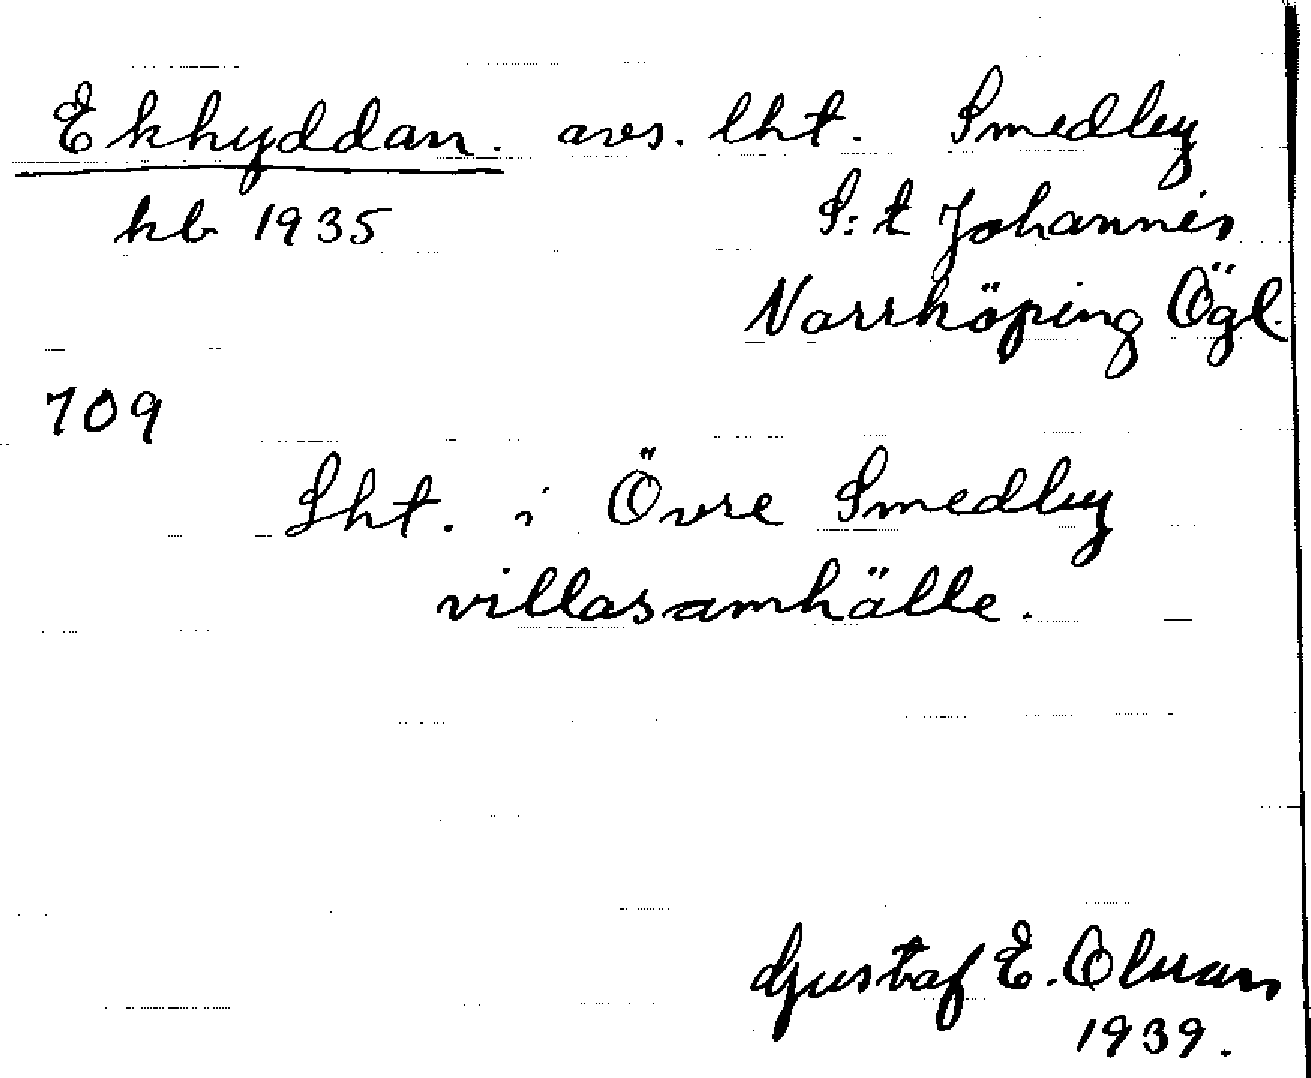 Ekhyddan. avs. lht. Smedby
kb 1935 S:t Johannes
Norrköping Ögl.
709
Lht. i Övre Smedby
villasamhälle.
Gustaf E. Olsson
1939.